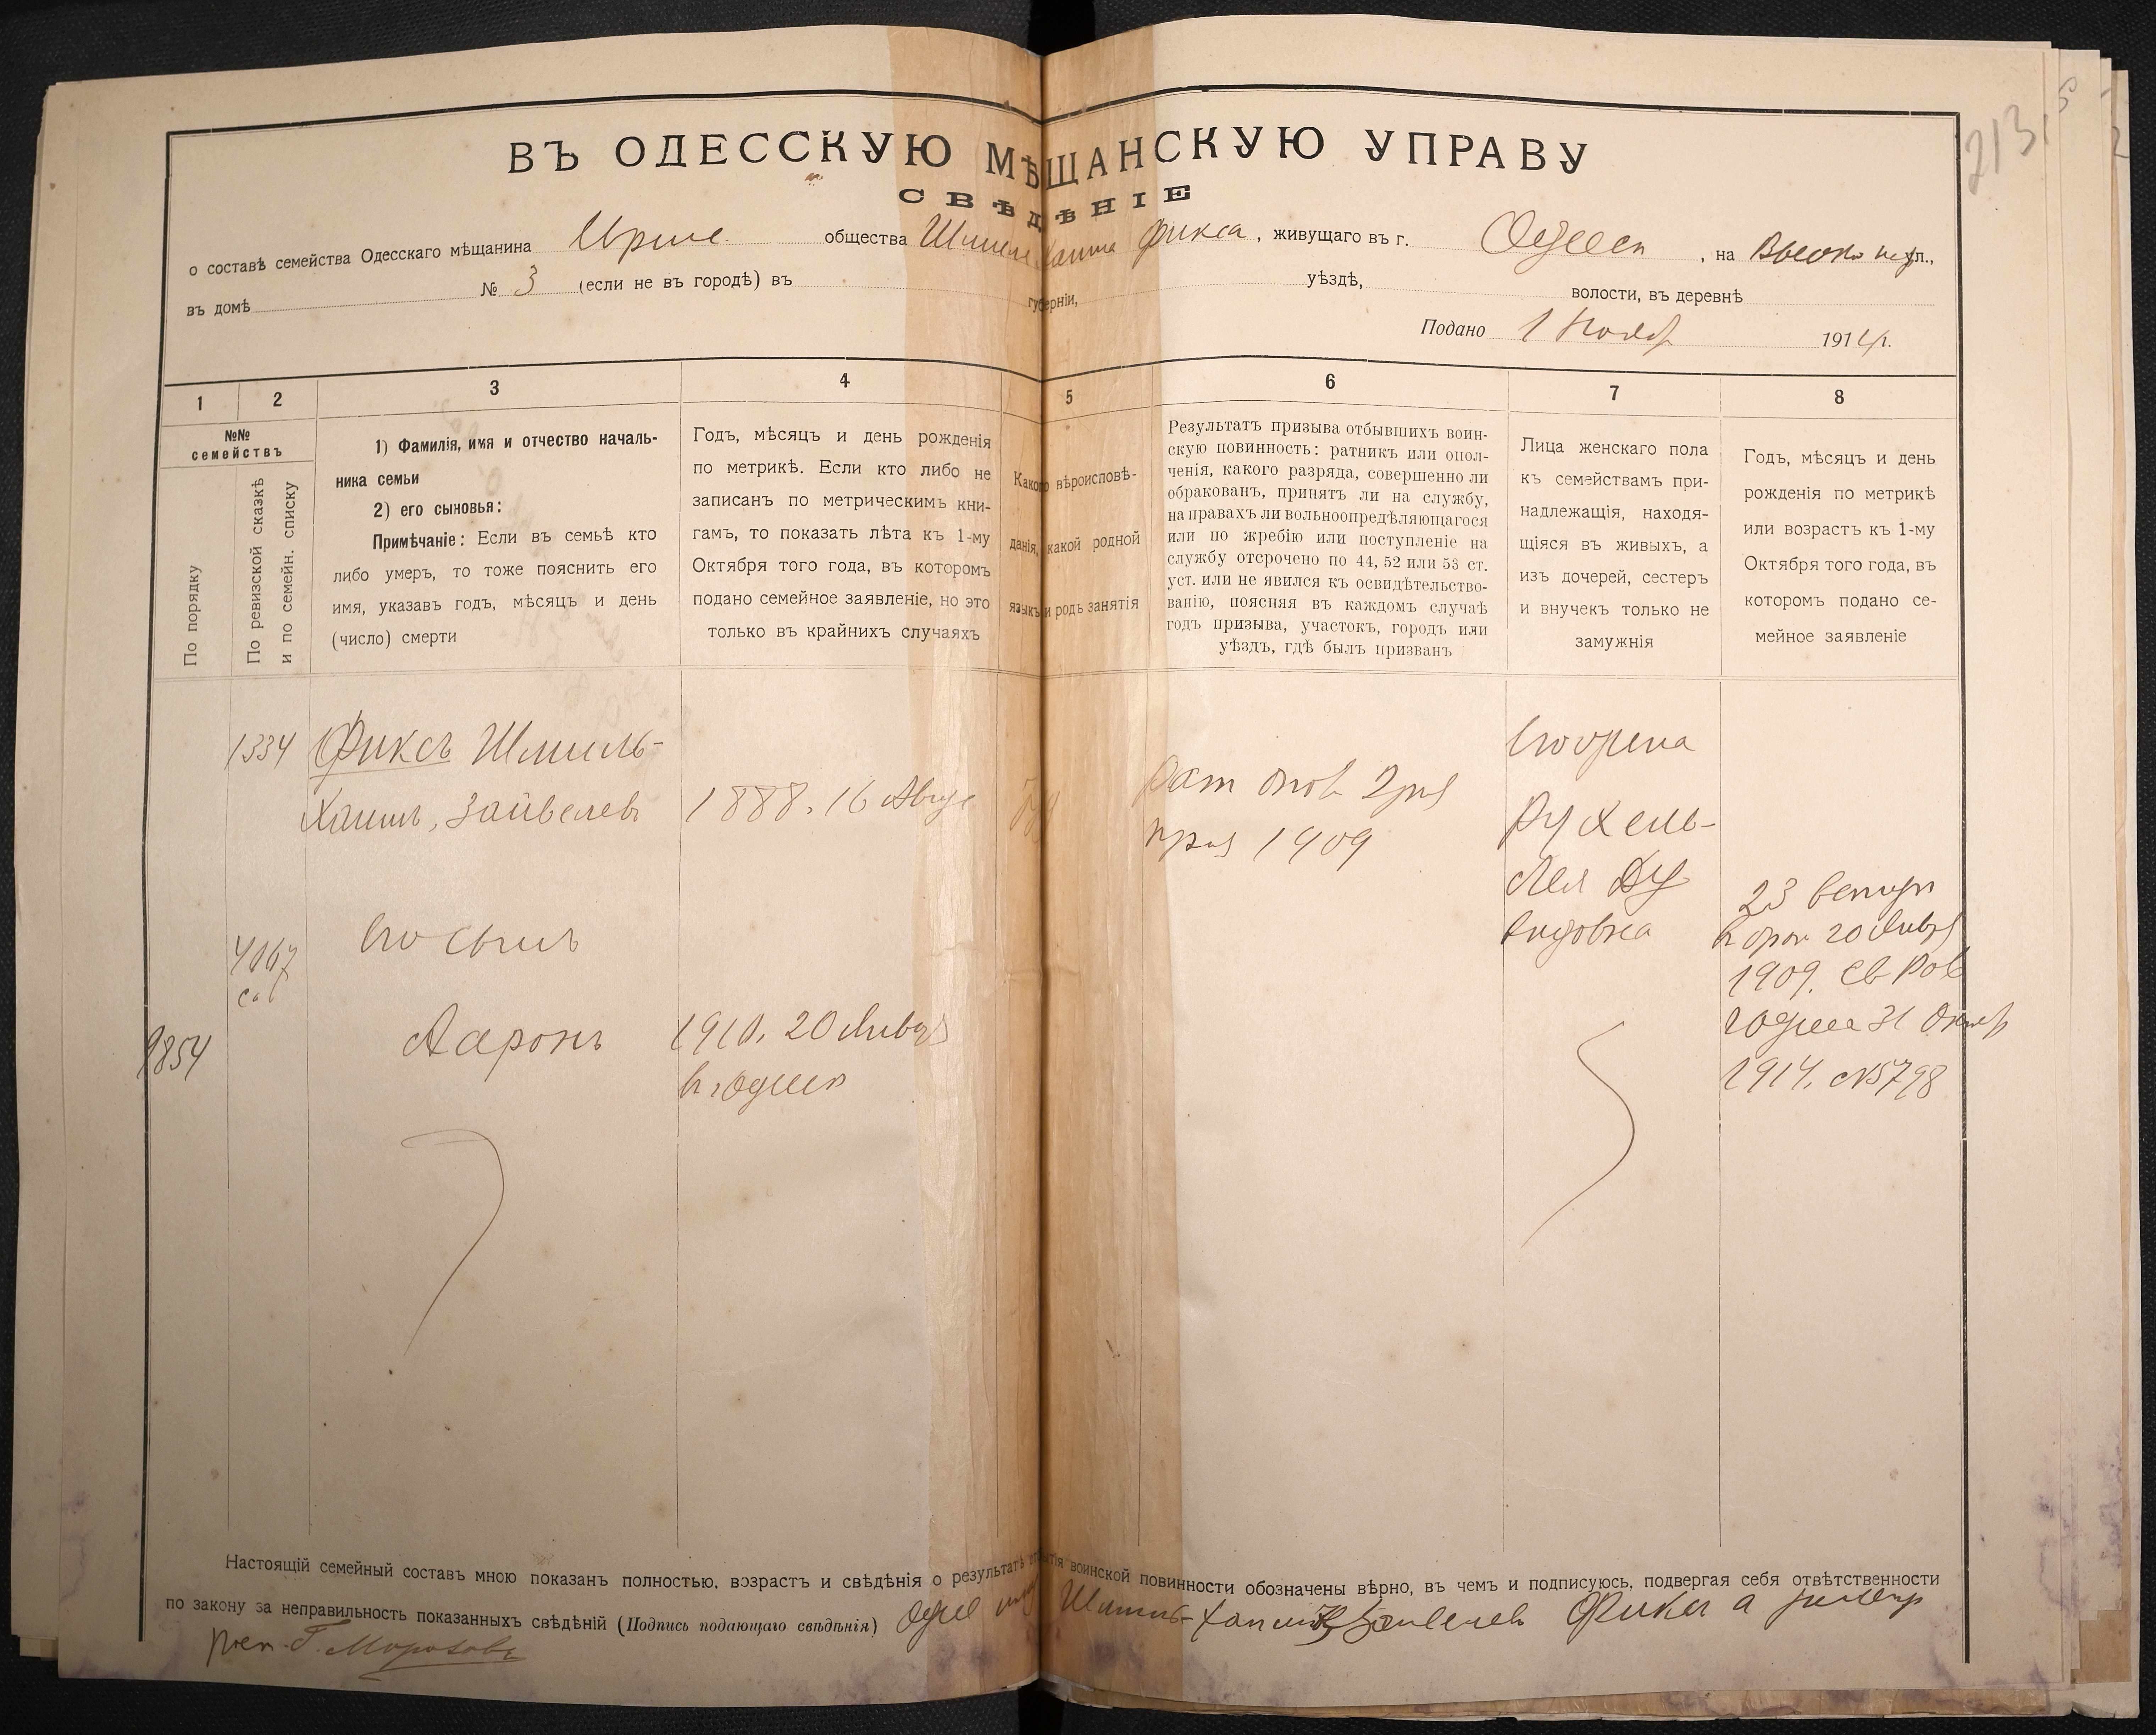 213
ВЪ ОДЕССКУЮ МѢЩАНСКУЮ УПРАВУ
СВѢДѢНІЕ
о составѣ семейства Одесскаго мѣщанина общества Шмиля Хаима Фикса, живущаго въ г. Одессѣ, на ул.,
въ домѣ № 3 (если не въ городѣ) въ губерніи, уѣздѣ, волости, въ деревнѣ
Подано 1 Нояб 1914 г.
1 2 3 4 5 6 7 8
№№
семействъ
По порядку
По ревизской сказкѣ
и по семейн. списку
1) Фамилія, имя и отчество началь-
ника семьи
2) его сыновья:
Примѣчаніе: Если въ семьѣ кто
либо умеръ, то тоже пояснить его
имя, указавъ годъ, мѣсяцъ и день
(число) смерти
Годъ, мѣсяцъ и день рожденія
по метрикѣ. Если кто либо не
записанъ по метрическимъ кни-
гамъ, то показать лѣта къ 1-му
Октября того года, въ которомъ
подано семейное заявленіе, но это
только въ крайнихъ случаяхъ
Какого вѣроисповѣ-
данія, какой родной
языкъ и родъ занятія
Результатъ призыва отбывшихъ воин-
скую повинность: ратникъ или опол-
ченія, какого разряда, совершенно ли
обракованъ, принятъ ли на службу,
на правахъ ли вольноопредѣляющагося
или по жребію или поступленіе на
службу отсрочено по 44, 52 или 53 ст.
уст. или не явился къ освидѣтельство-
ванію, поясняя въ каждомъ случаѣ
годъ призыва, участокъ, городъ или
уѣздъ, гдѣ былъ призванъ
Лица женскаго пола
къ семействамъ при-
надлежащія, находя-
щіяся въ живыхъ, а
изъ дочерей, сестеръ
и внучекъ только не
замужнія
Годъ, мѣсяцъ и день
рожденія по метрикѣ
или возрастъ къ 1-му
Октября того года, въ
которомъ подано се-
мейное заявленіе
1334 Фиксъ Шмиль-
Хаимъ, Зайвелевъ 1888. 16 Авгус
Рат опол 2 раз
приз 1909
Его жена
Рухель-
Лея Ду
видовна
23
20 Января
1909. св Рав
Одесса 31 Октяб
1914. №5798
4167
Его сынъ
9854 Ааронъ 1910. 20 Январ
в г Одессѣ
Настоящій семейный составъ мною показанъ полностью, возрастъ и свѣдѣнія о результатѣ отбытія воинской повинности обозначены вѣрно, въ чемъ и подписуюсь, подвергая себя отвѣтственности
по закону за неправильность показанныхъ свѣдѣній (Подпись подающаго свѣдѣнія) Одес мѣщ Шмиль-Хаимъ Зайвелев Фиксъ а
Г. Морозовъ